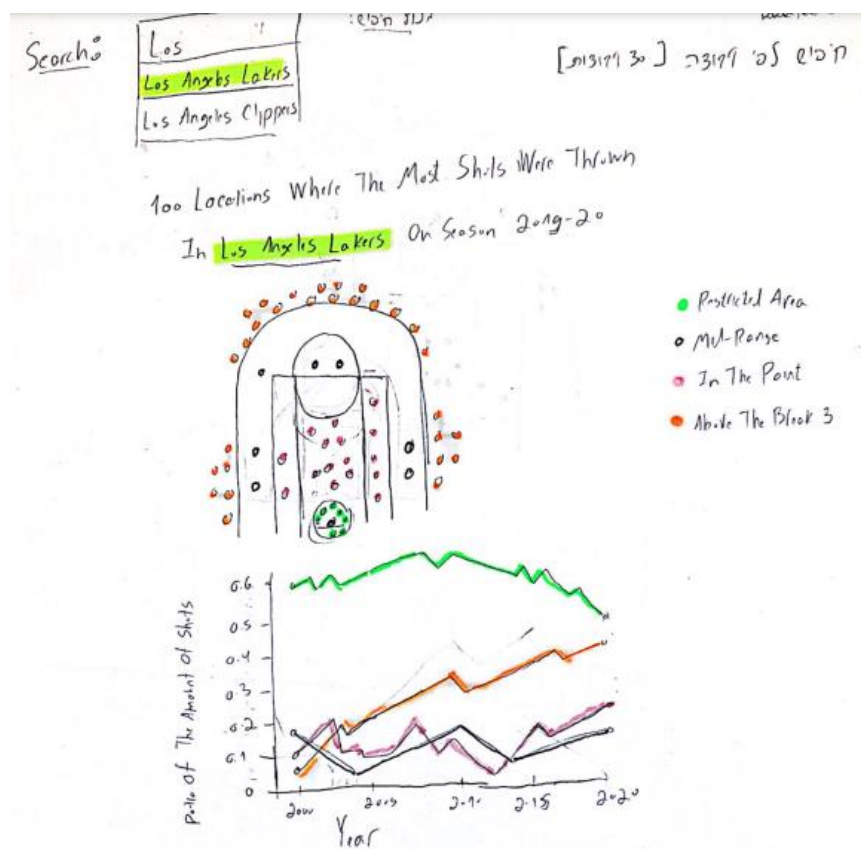 חיפוש לפי נקודה [30 נקודות]
Search:
Los
Los Angeles Lakers
Los Angeles Clippers
100 Locations Where The Most Shots Were Thrown
In Los Angeles Lakers On Season 2019-20
Restricted Area
Mid-Range
In The Paint
Above The Break 3
Ratio Of The Amount Of Shots
0.6
0.5
0.4
0.3
0.2
0.1
0
2000
2005
2010
2015
2020
Year